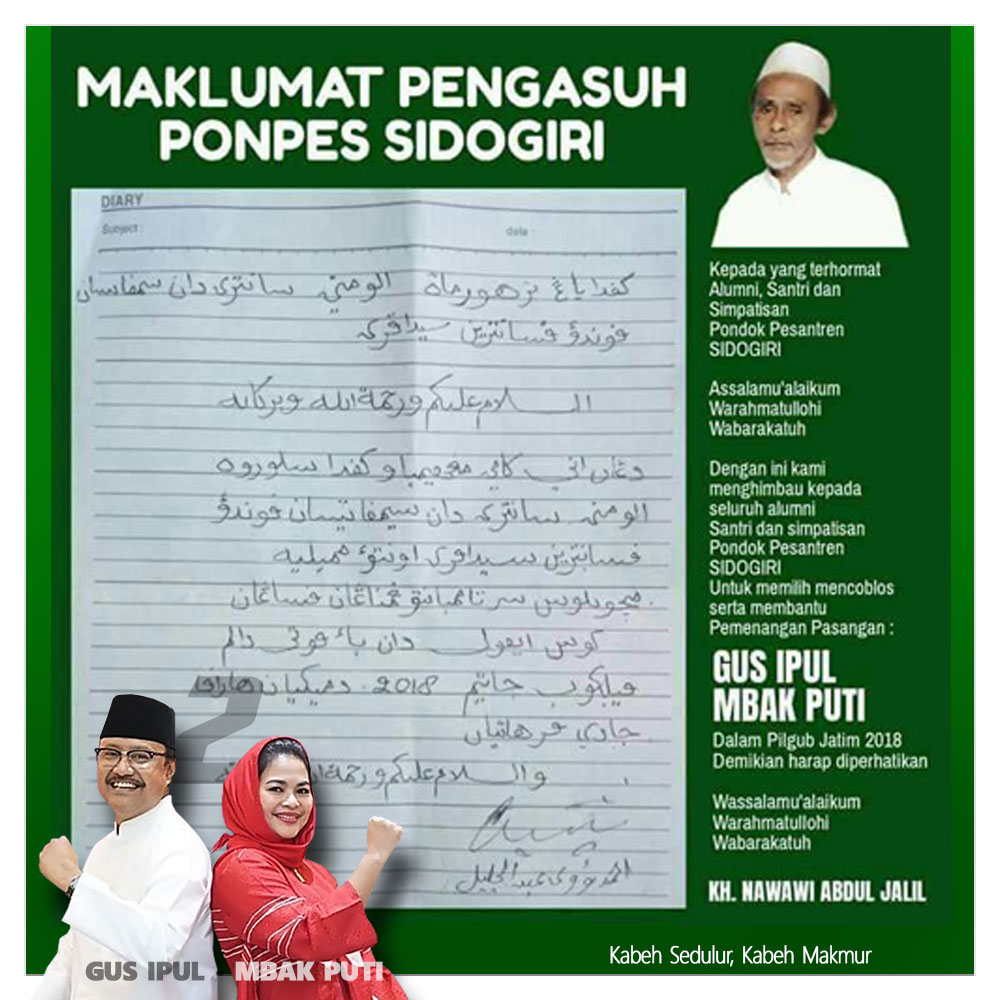 MAKLUMAT PENGASUH
PONPES SIDOGIRI
DIARY
Subject :
date :
كفدا ياڠ ترهورمات الومني سانتري دان سمفاتيسان
فوندؤ فسانترين سيداڬري
السلام عليكم ورحمة الله وبركاته
دڠان اني كامي مڠهيمباو كفدا سلوروه
الومني سانتري دان سيمفاتيسان فوندؤ
فسانترين سيداڬري اونتوء مميليه
مڽوبلوس سرتا ممبانتو فمناڠان فساڠان
ڬوس ايفول دان مباء فوتي دالم
فيلڬوب جاتيم 2018. دميكيان هارف
والسلام عليكم ورحمة
احمد نووي عبد الجليل
Kepada yang terhormat
Alumni, Santri dan
Simpatisan
Pondok Pesantren
SIDOGIRI
Assalamu'alaikum
Warahmatullohi
Wabarakatuh
Dengan ini kami
menghimbau kepada
seluruh alumni
Santri dan simpatisan
Pondok Pesantren
SIDOGIRI
Untuk memilih mencoblos
serta membantu
Pemenangan Pasangan :
GUS IPUL
MBAK PUTI
Dalam Pilgub Jatim 2018
Demikian harap diperhatikan
Wassalamu'alaikum
Warahmatullohi
Wabarakatuh
KH. NAWAWI ABDUL JALIL
2
GUS IPUL - MBAK PUTI
Kabeh Sedulur, Kabeh Makmur